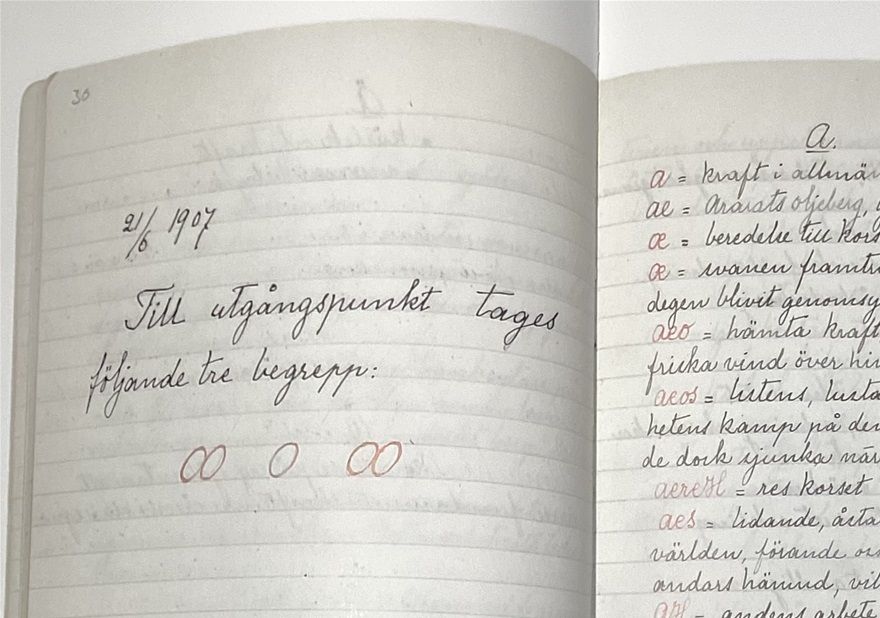 30
21/6 1907
Till utgångspunkt tages
följande tre begrepp:
OO O OO
a.
a = kraft i allmän
ae = Ararats oljeberg,
æ = beredelse till kors
æ = svanen framtr
degen blivit genomsy
aeo = hämta kraft
friska vind över hi
aeos = listens, lusta
hetens kamp på de
de dock sjunka när
aereH = res korset
aes = lidande, åsta
världen, förande
andars hämnd, vil
= andens arbete